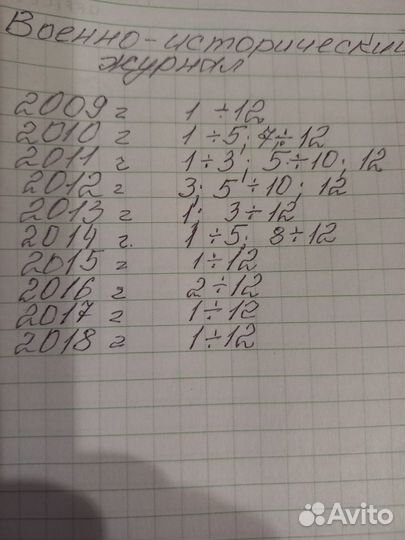 Военно-исторический
журнал
2009 г 1 ÷ 12
2010 г 1 ÷ 5; 7 ÷ 12
2011 г 1 ÷ 3; 5 ÷ 10; 12
2012 г 3; 5 ÷ 10; 12
2013 г 1; 3 ÷ 12
2014 г. 1 ÷ 5; 8 ÷ 12
2015 г 1 ÷ 12
2016 г 2 ÷ 12
2017 г 1 ÷ 12
2018 г 1 ÷ 12
Avito